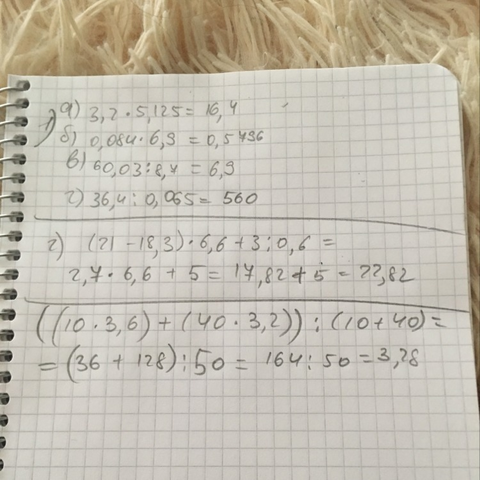 1) а) 3,2 · 5,125 = 16,4
б) 0,084 · 6,9 = 0,5796
в) 60,03 : 8,7 = 6,9
г) 36,4 : 0,065 = 560
2) (21 - 18,3) · 6,6 + 3 : 0,6 =
2,7 · 6,6 + 5 = 17,82 + 5 = 22,82
((10 · 3,6) + (40 · 3,2)) : (10 + 40) =
= (36 + 128) : 50 = 164 : 50 = 3,28